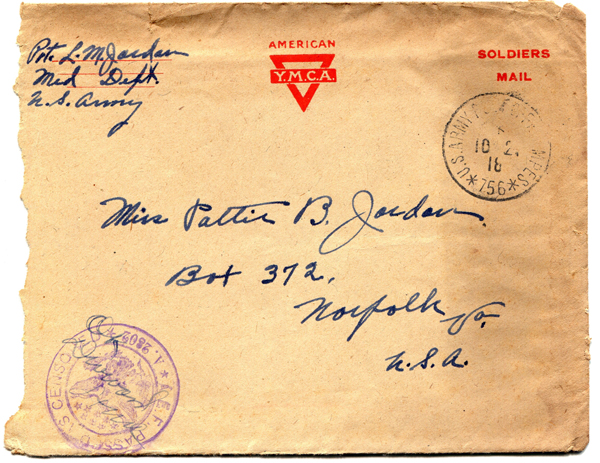 Pvt. L. M. Jordan
Med Dept.
U.S. Army
AMERICAN
Y.M.C.A.
SOLDIERS
MAIL
U.S. ARMY
10 2
18
*756*
Miss Pattie B. Jordan
Box 372,
Norfolk Va.
U.S.A.
A.E.F. PASSED AS CENSORED
A. 2802